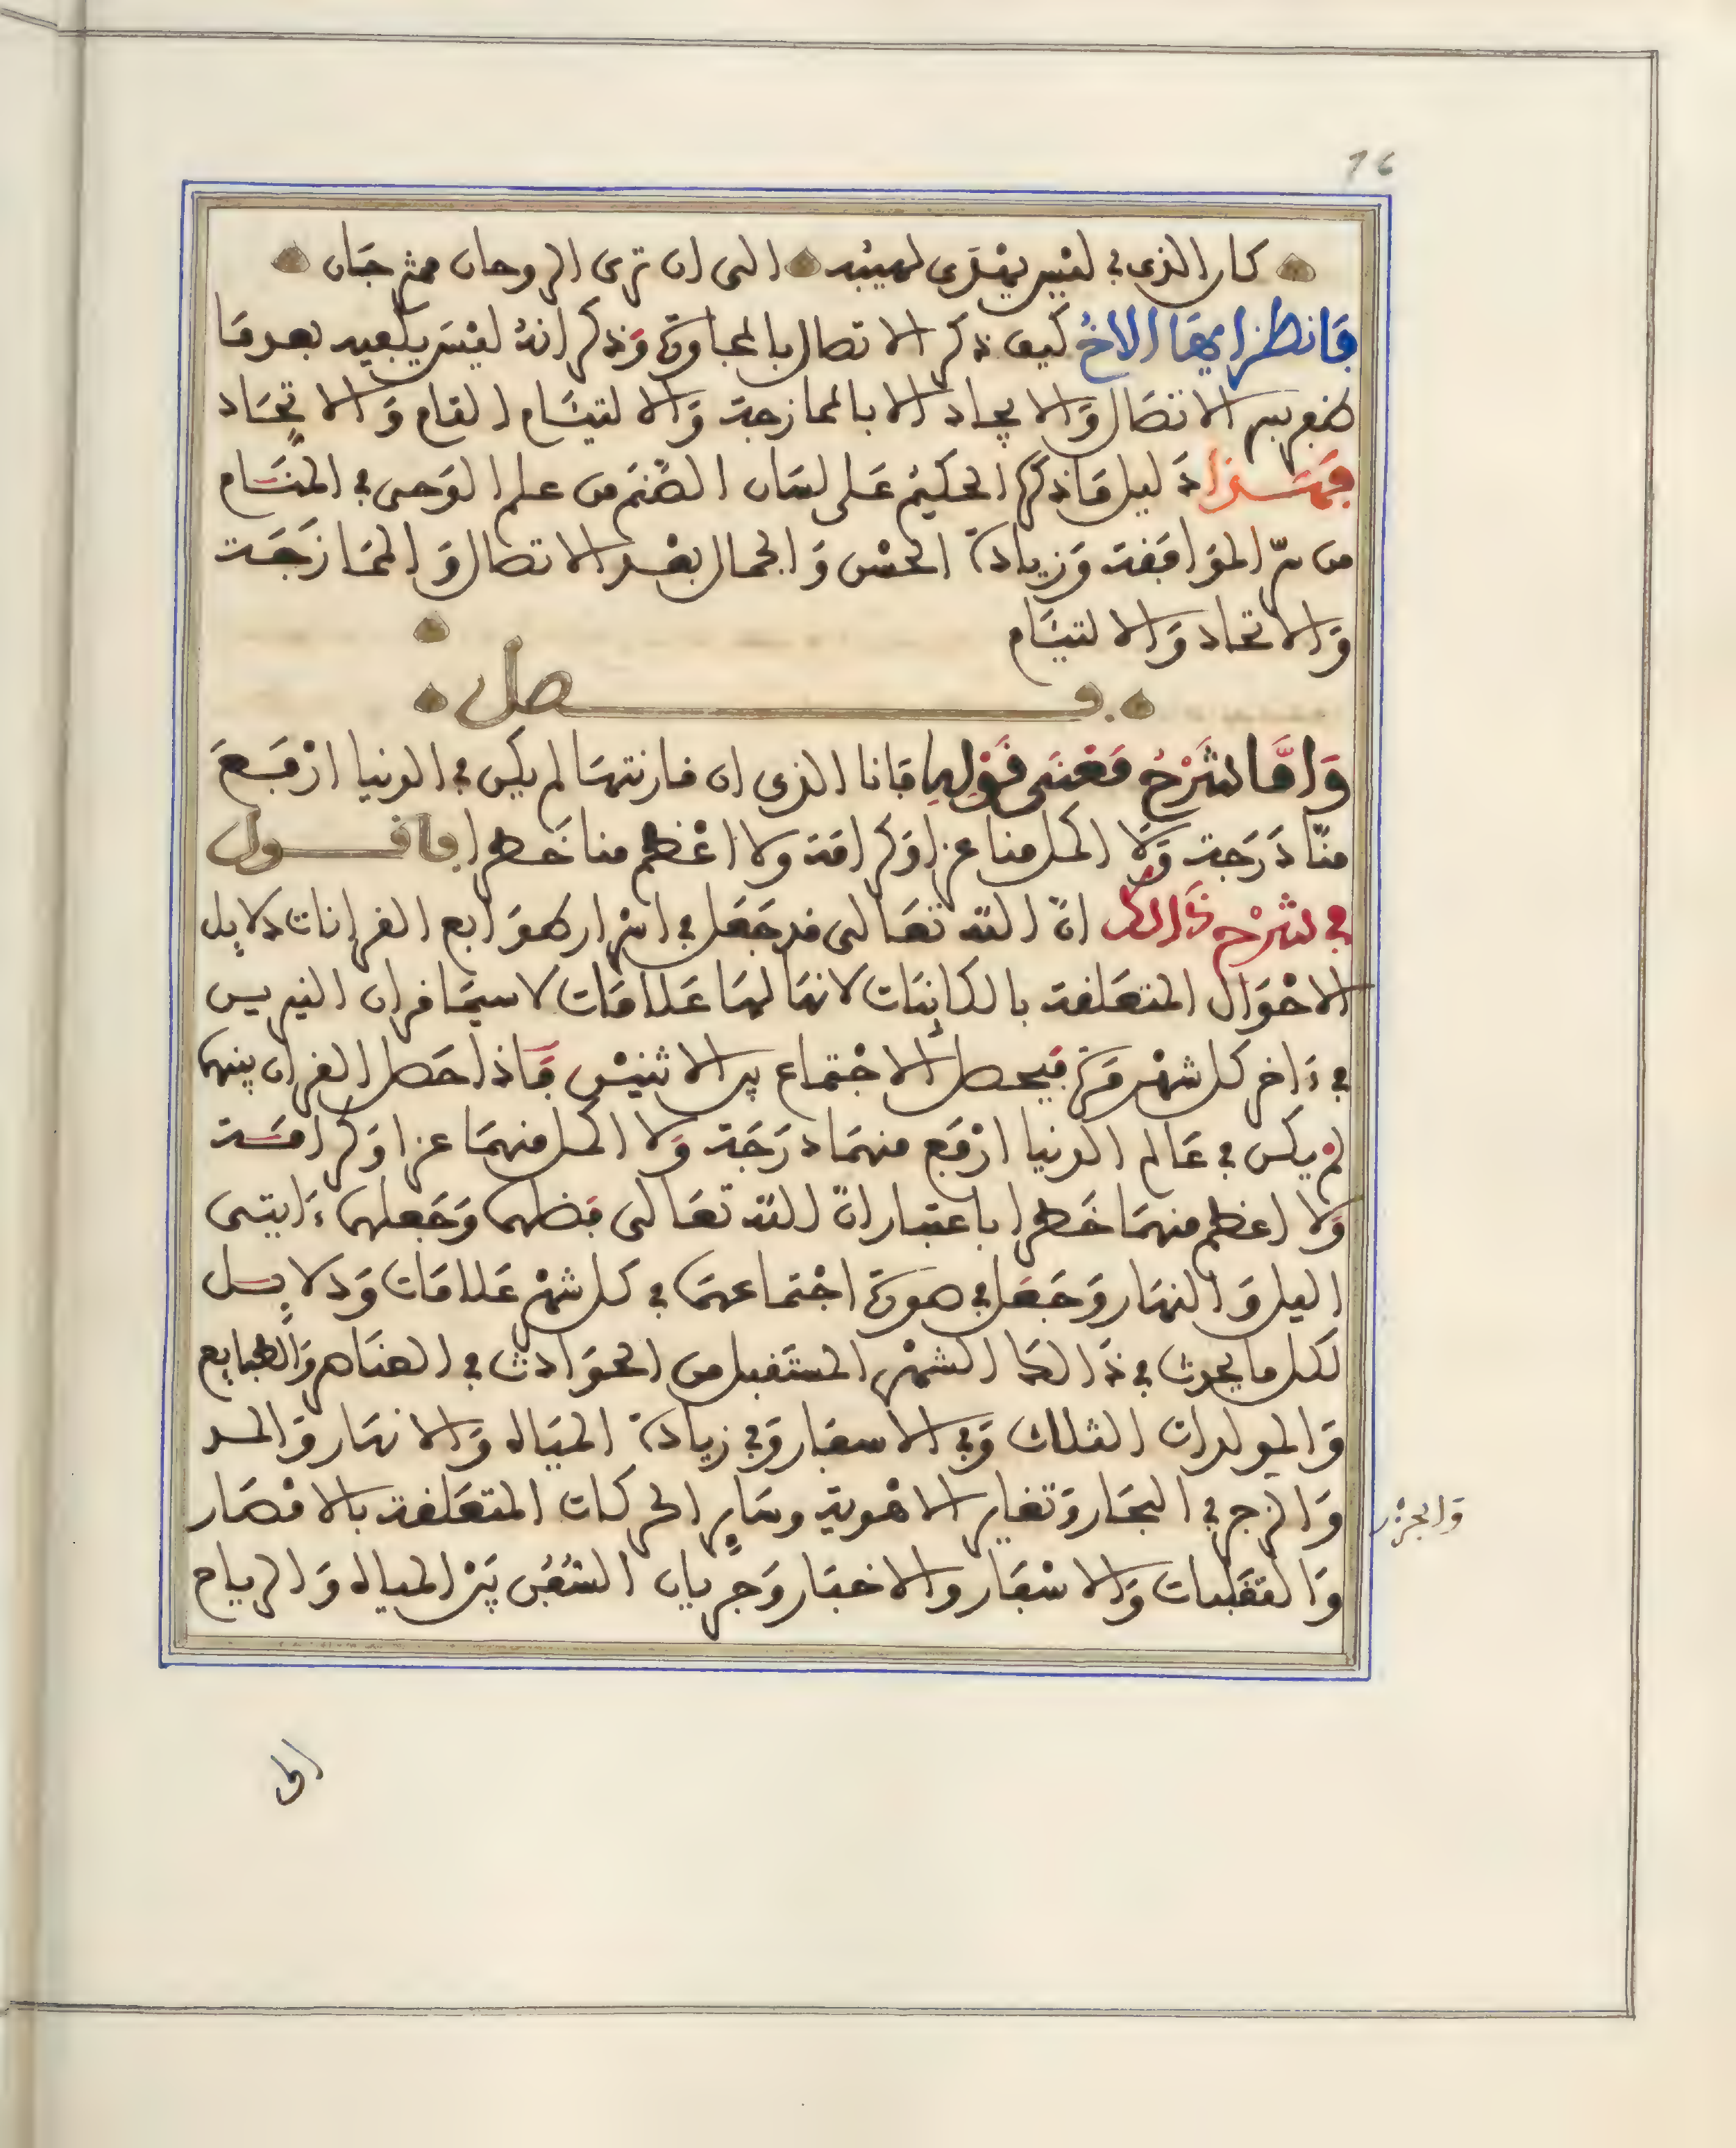 16
كان الذي في ليس يشفى لهيبه الى ان ترى الروحان ممتزجان
فانظر ايها الاخ كيف ذكر الاتصال بالمجاورة وذكر انه ليس بكبعيد بعد ما
الاتصال والايجاد الا بالممازجة والالتيام التام والاتحاد
فهذا دليل ما ذكر الحكيم على لسان الصنم من علم الوحى في المنام
من سر الموافقة وزيادة الحسن والجمال بعد الاتصال والممازجة
والاتحاد والالتيام
فصل
واما شرح معنى قولها فانا الذي ان قارنتها لم يكن في الدنيا ارفع
منا درجة ولا اكمل منا عزا وكرامة ولا اعظم منا خطرا فاقول
في شرح ذالك ان الله تعالى قد جعل في اسرار طوابع القرانات دلايل
الاحوال المتعلقة بالكاينات لانها لها علامات لا سيما قران النيرين
في ءاخر كل شهر مرة فيحصل الاجتماع بين الاثنين فاذا حصل القران بينهما
لم يكن في عالم الدنيا ارفع منهما درجة ولا اكمل منهما عزا وكرامة
ولا اعظم منهما خطرا باعتبار ان الله تعالى فضلهما وجعلهما ءايتى
اليل والنهار وجعل في صورة اجتماعهما في كل شهر علامات ودلايل
لكل ما يحدث في ذالك الشهر المستقبل من الحوادث في العناصر والطبايع
والمولدات الثلاث وفي الاسعار وفي زيادة المياه والانهار والمد
والزجر في البحار وتغاير الاهوية وساير الحركات المتعلقة بالاقصار
والتقلبات والاسفار والاخبار وجريان السفن بين المياه والرياح
والجزر
الى